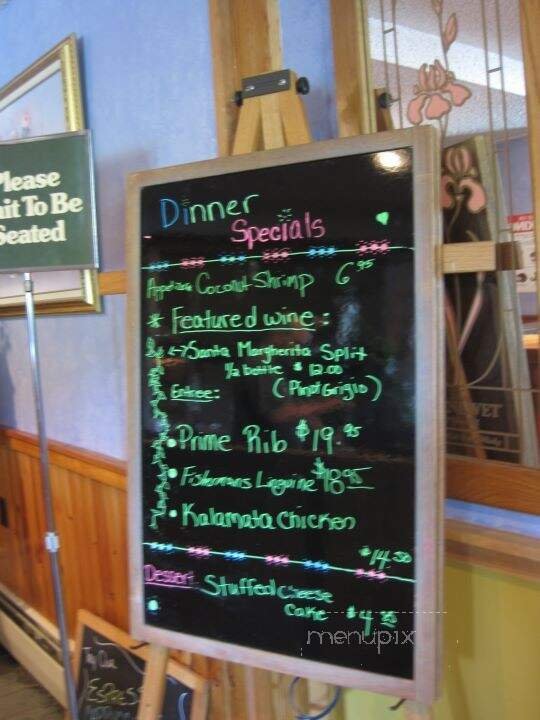 Please
Wait To Be
Seated
Dinner
Specials
Appetizer Coconut Shrimp 6.95
* Featured wine:
Santa Margherita Split
1/2 bottle $12.00
Entree: (Pinot Grigio)
• Prime Rib $19.95
• Fishermans Linguine $18.95
• Kalamata Chicken
$14.50
Dessert Stuffed Cheese
Cake $4.95
menupix
Try Our
ESPRESS